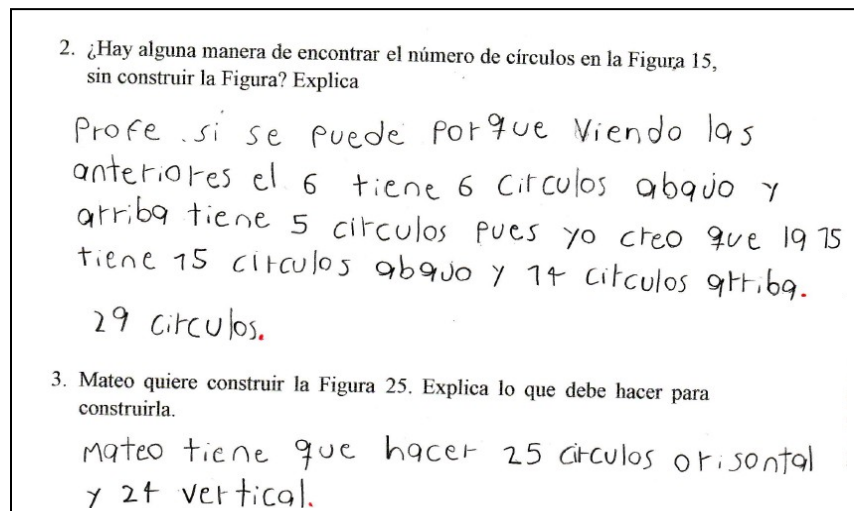 2. ¿Hay alguna manera de encontrar el número de círculos en la Figura 15,
sin construir la Figura? Explica
Profe . si se puede porque viendo las
anteriores el 6 tiene 6 circulos abajo y
arriba tiene 5 circulos pues yo creo que la 15
tiene 15 circulos abajo y 14 circulos arriba.
29 circulos.
3. Mateo quiere construir la Figura 25. Explica lo que debe hacer para
construirla.
Mateo tiene que hacer 25 circulos orisontal
y 24 vertical.